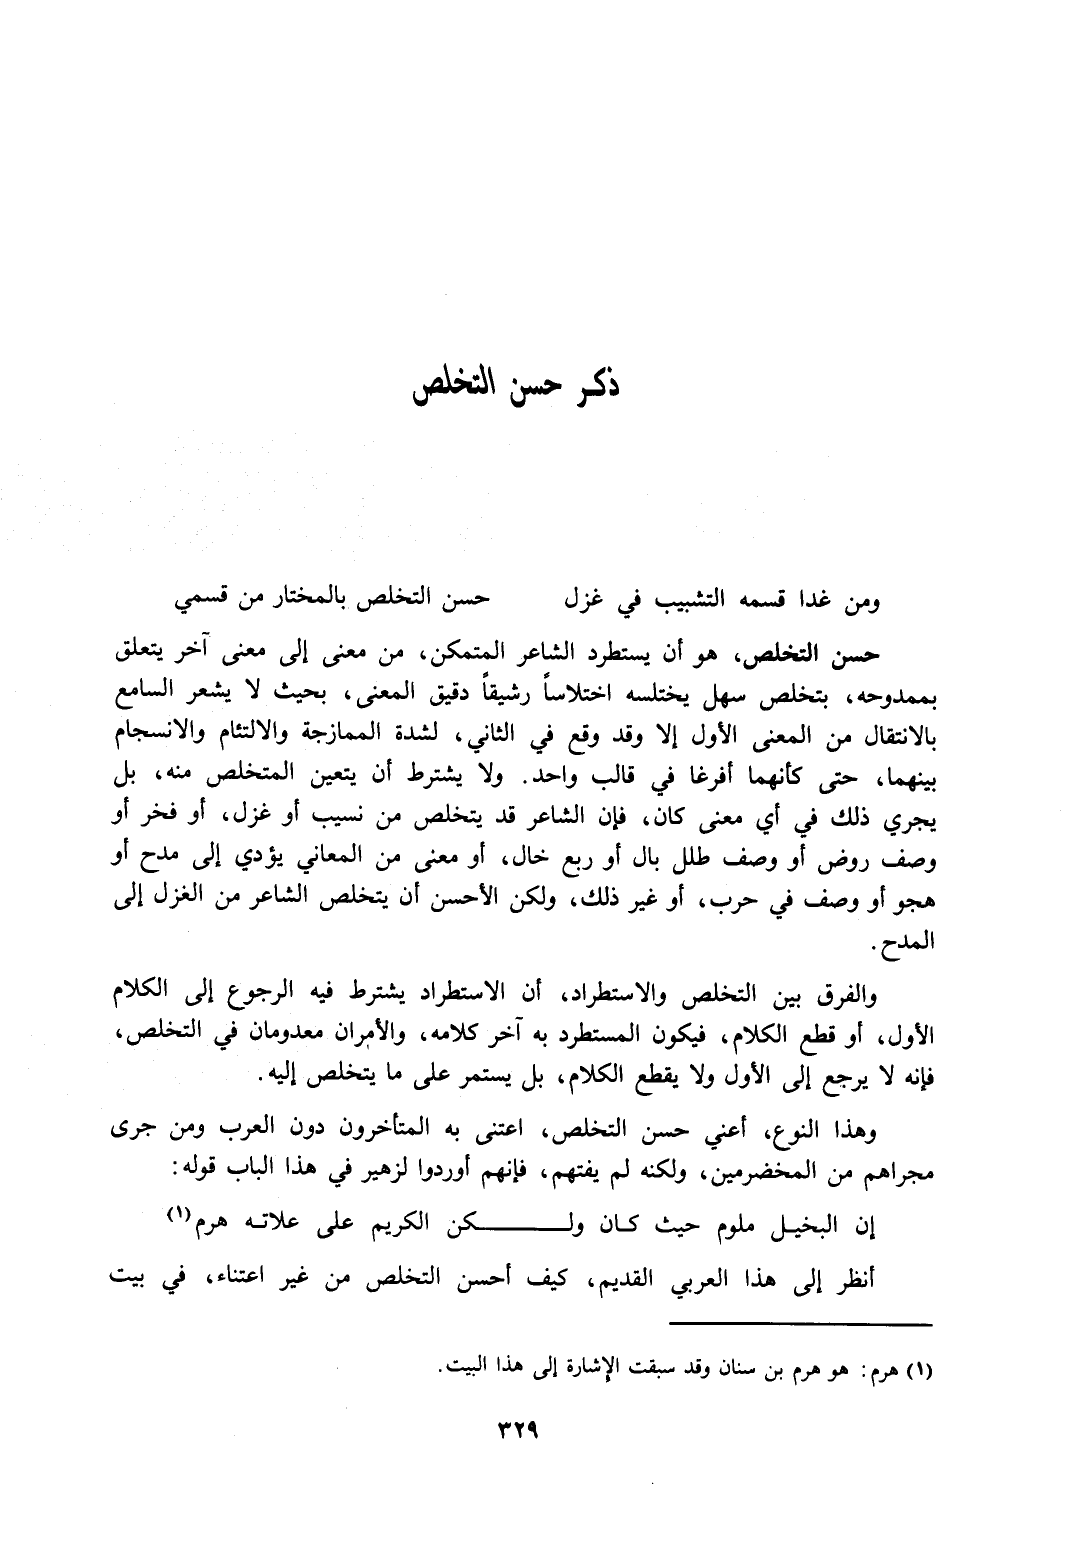 ذكر حسن التخلص
ومن غدا قسمه التشبيب في غزل حسن التخلص بالمختار من قسمي
حسن التخلص، هو أن يستطرد الشاعر المتمكن، من معنى إلى معنى آخر يتعلق
بممدوحه، بتخلص سهل يختلسه اختلاساً رشيقاً دقيق المعنى، بحيث لا يشعر السامع
بالانتقال من المعنى الأول إلا وقد وقع في الثاني، لشدة الممازجة والالتئام والانسجام
بينهما، حتى كأنهما أفرغا في قالب واحد. ولا يشترط أن يتعين المتخلص منه، بل
يجري ذلك في أي معنى كان، فإن الشاعر قد يتخلص من نسيب أو غزل، أو فخر أو
وصف روض أو وصف طلل بال أو ربع خال، أو معنى من المعاني يؤدي إلى مدح أو
هجو أو وصف في حرب، أو غير ذلك، ولكن الأحسن أن يتخلص الشاعر من الغزل إلى
المدح.
والفرق بين التخلص والاستطراد، أن الاستطراد يشترط فيه الرجوع إلى الكلام
الأول، أو قطع الكلام، فيكون المستطرد به آخر كلامه، والأمران معدومان في التخلص،
فإنه لا يرجع إلى الأول ولا يقطع الكلام، بل يستمر على ما يتخلص إليه.
وهذا النوع، أعني حسن التخلص، اعتنى به المتأخرون دون العرب ومن جرى
مجراهم من المخضرمين، ولكنه لم يفتهم، فإنهم أوردوا لزهير في هذا الباب قوله:
إن البخيـل ملوم حيث كـان ولـــــــكن الكريم على علاتـه هرم(١)
أنظر إلى هذا العربي القديم، كيف أحسن التخلص من غير اعتناء، في بيت
(١) هرم: هو هرم بن سنان وقد سبقت الإشارة إلى هذا البيت.
٣٢٩